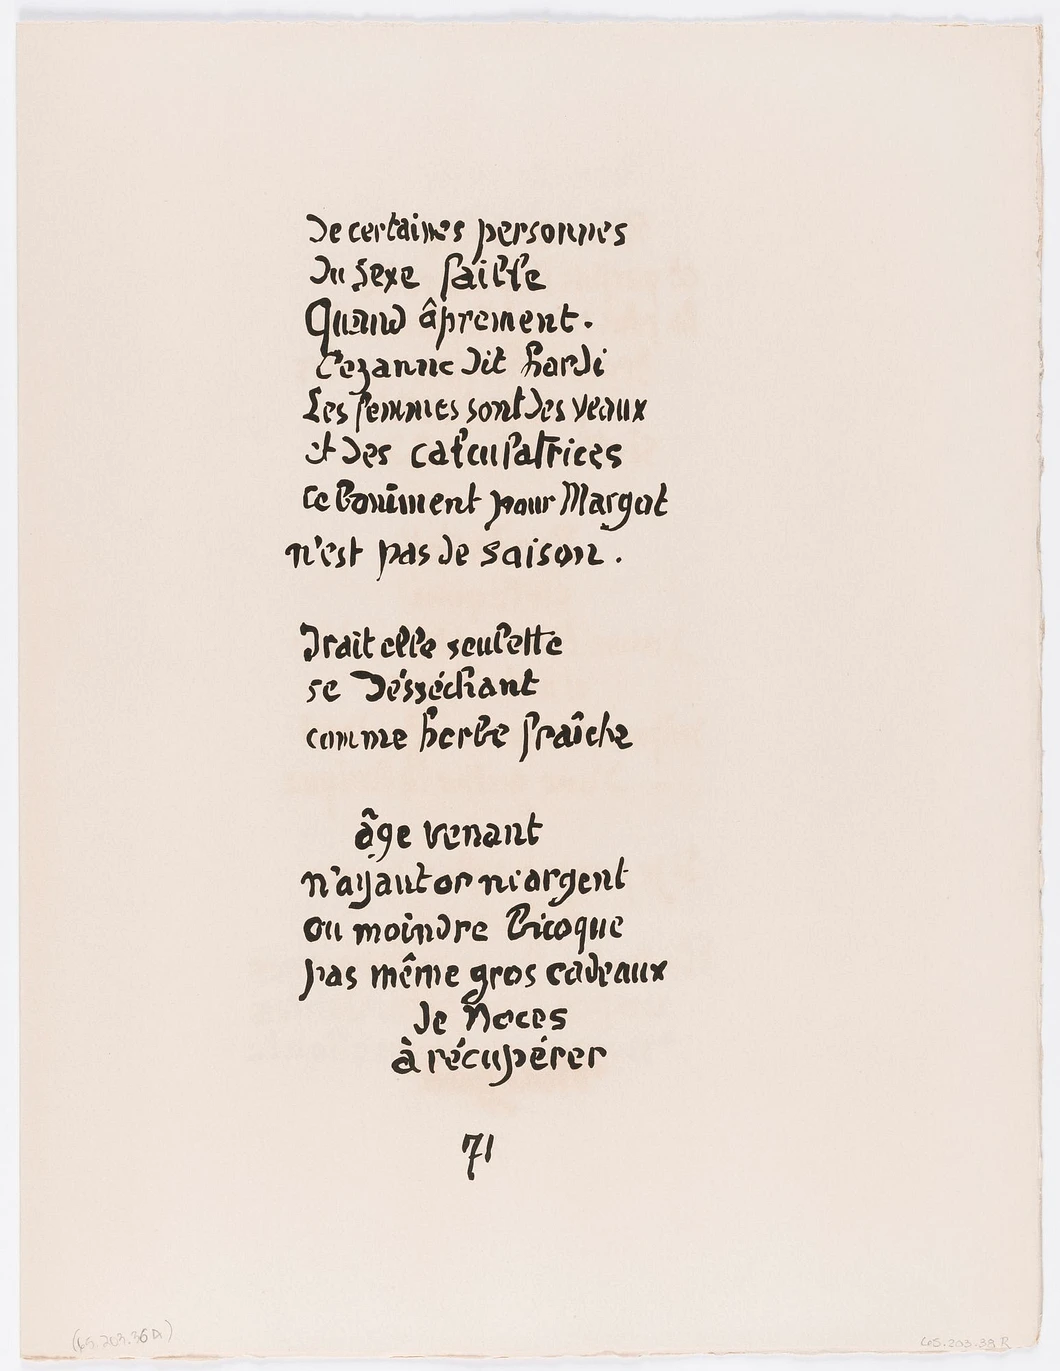 De certaines personnes
Du Sexe faible
Quand âprement.
Cezanne dit hardi
Les femmes sont des veaux
et des calculatrices
ce boniment pour Margot
n'est pas de saison.
Irait elle seulette
se desséchant
comme herbe fraîche
âge venant
n'ayant or ni argent
ou moindre bicoque
pas même gros cadeaux
de Noces
à récupérer
71
65.203.38 R